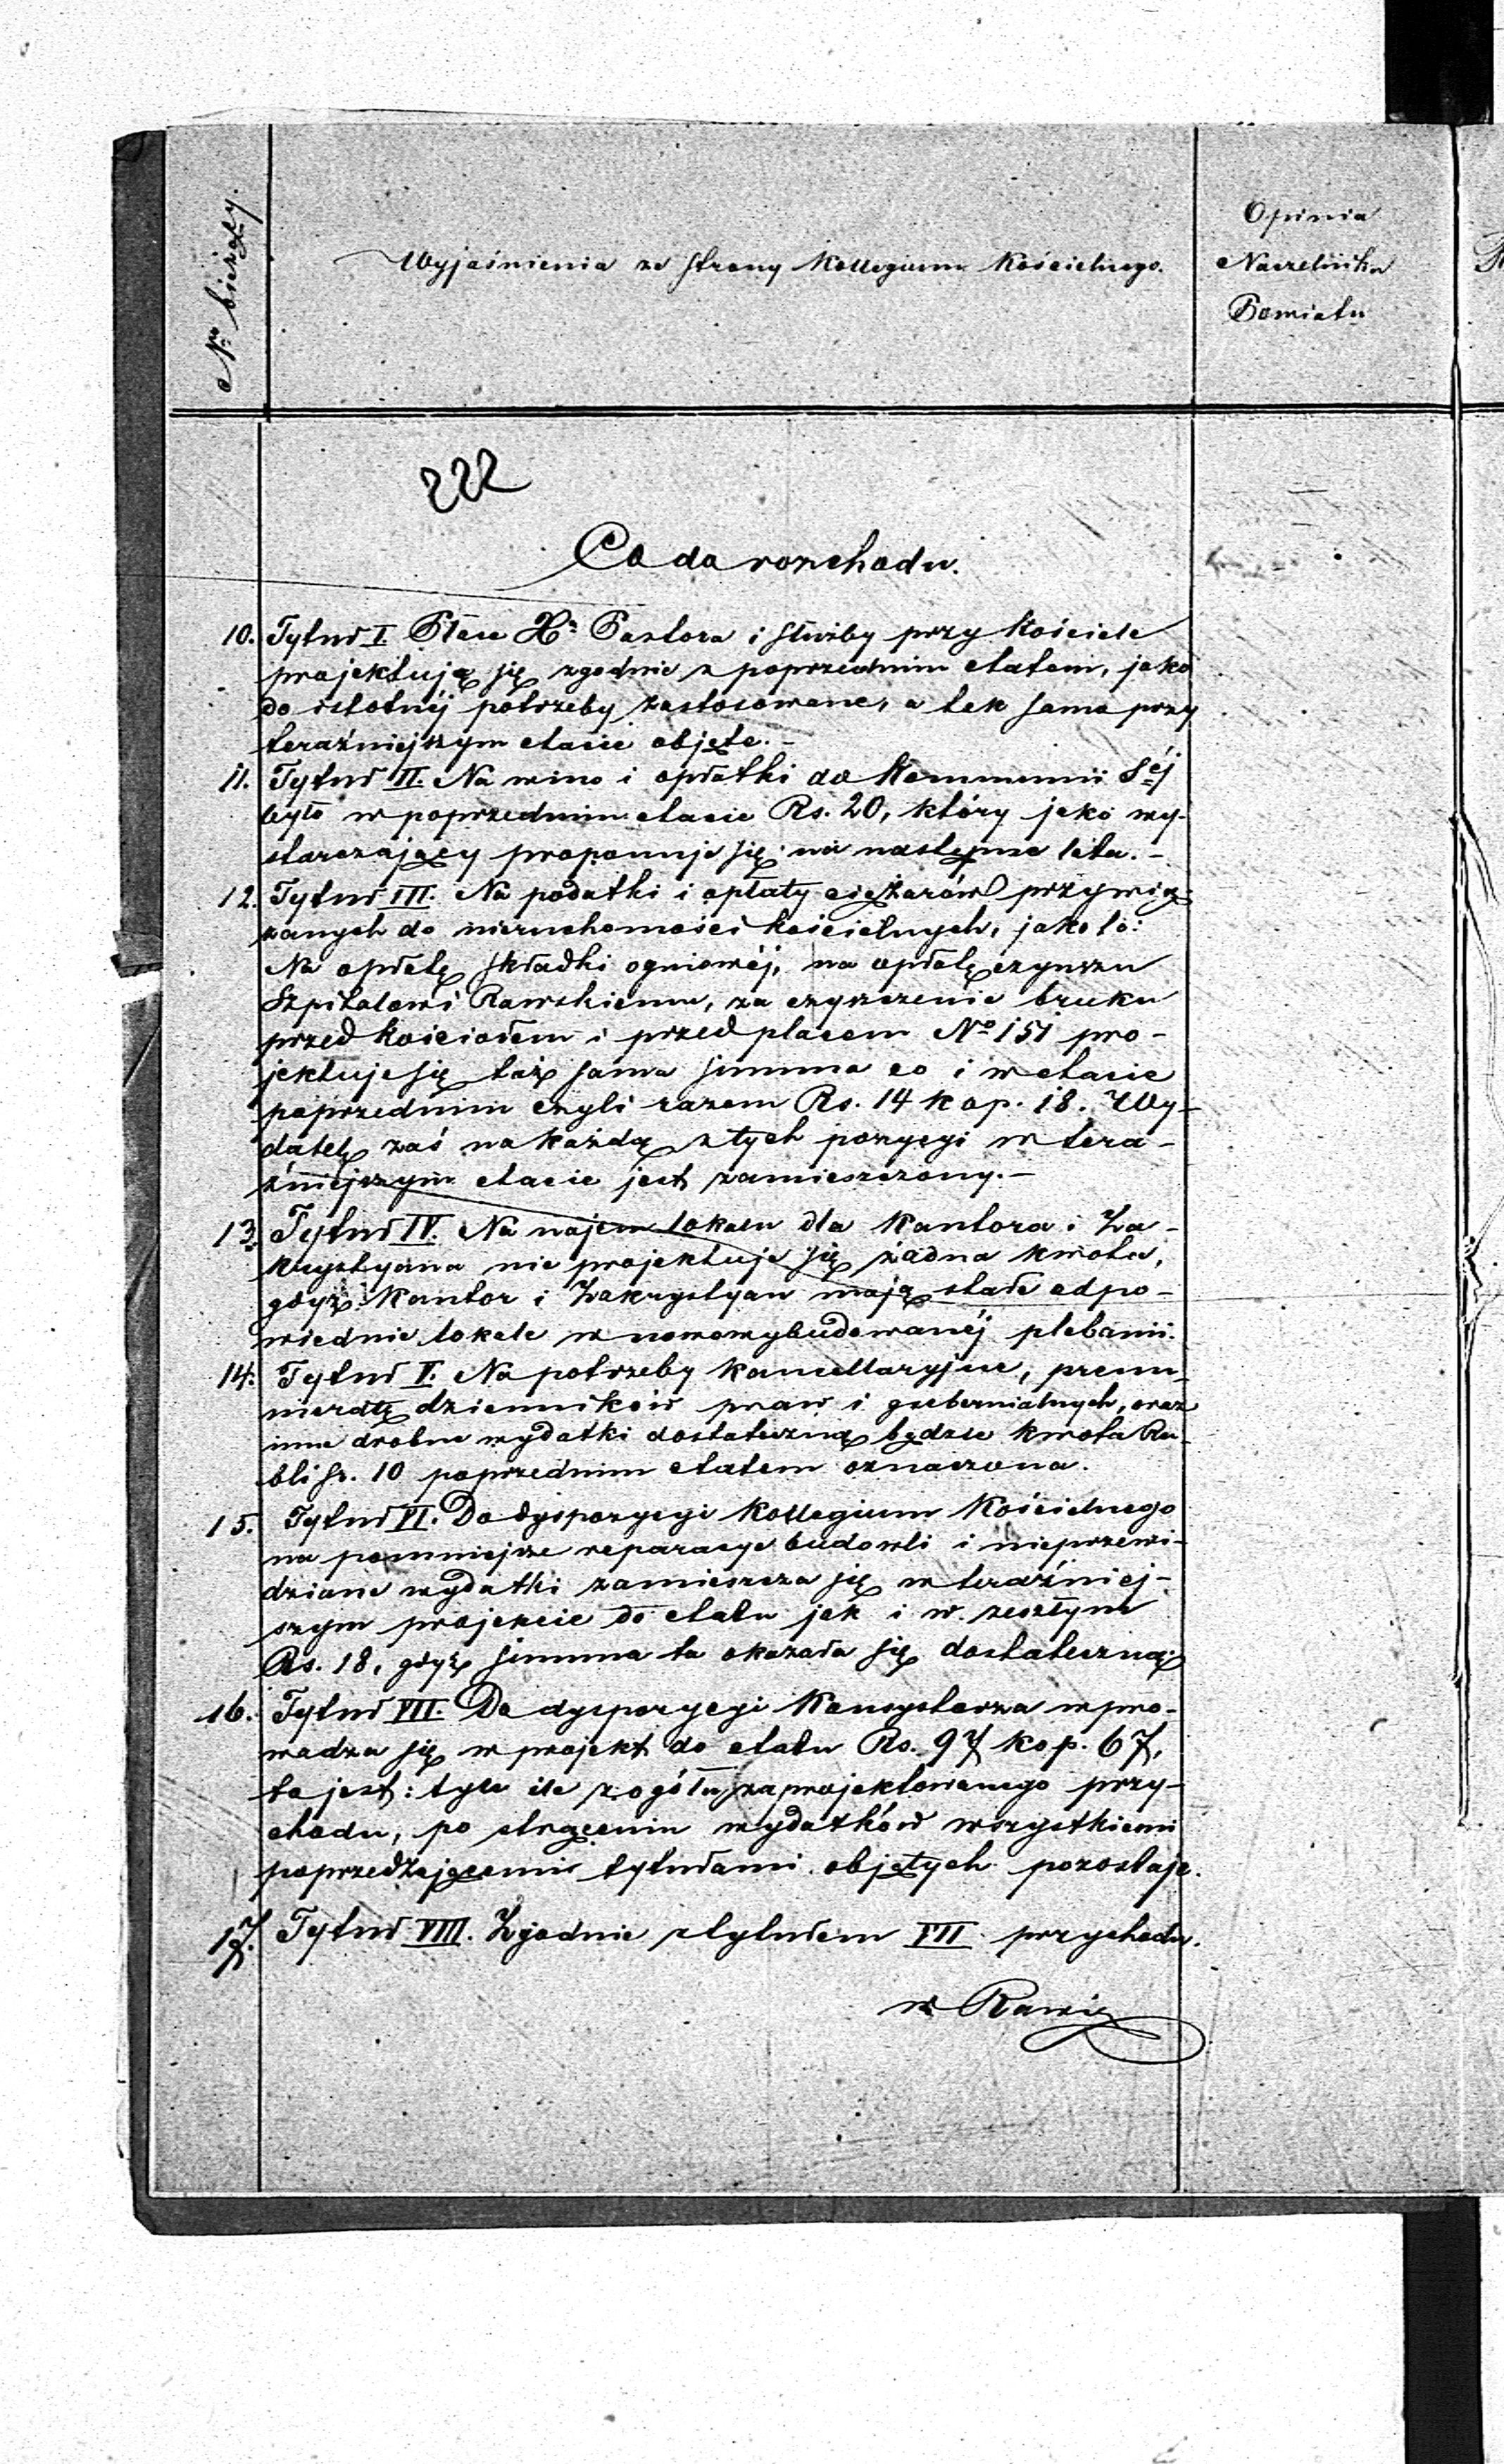 Nr bieżący.
Wyjaśnienia ze strony Kollegium Kościelnego.
Opinia
Naczelnika
Powiatu
222
Co do rozchodu.
10. Tytuł I. Płace Xa Pastora i służby przy kościele
projektują się zgodnie z poprzednim etatem, jako
do istotnéj potrzeby zastosowane, a tak samo przy
teraźniejszym etacie objęte. –
11. Tytuł II. Na wino i opłatki do Kommunii Séj
było w poprzednim etacie Rs. 20, który jako wy-
starczający proponuje się na następne lata. –
12. Tytuł III. Na podatki i opłaty ciężarów przywią-
zanych do nieruchomości kościelnych, jako to:
Na opłatę składki ogniowéj, na opłatę czynszu
Szpitalowi Rawskiemu, za czyszczenie bruku
przed kościołem i przed placem No 151 pro-
jektuje się taż sama summa co i w etacie
poprzednim czyli razem Rs. 14 kop. 18. Wy-
datek zaś na każdą z tych pozycyi w tera-
źniejszym etacie jest zamieszczony. –
13. Tytuł IV. Na najem lokalu dla Kantora i Za-
krystyana nie projektuje się żadna kwota,
gdyż Kantor i Zakrystyan mają stałe odpo-
wiednie lokale w nowowybudowanéj plebanii.
14. Tytuł V. Na potrzeby kancellaryjne, prenu-
meratę dzienników praw i gubernialnych, oraz
inne drobne wydatki dostateczną będzie kwota Ru-
bli sr. 10 poprzednim etatem oznaczona.
15. Tytuł VI. Do dyspozycyi Kollegium Kościelnego
na pomniejsze reparacye budowli i nieprzewi-
dziane wydatki zamieszcza się w teraźniej-
szym projekcie do etatu jak i w zeszłym
Rs. 18, gdyż summa ta okazała się dostateczną.
16. Tytuł VII. Do dyspozycyi Konsystorza wpro-
wadza się w projekt do etatu Rs. 97 kop. 67,
to jest: tyle ile z ogółu zaprojektowanego przy-
chodu, po strąceniu wydatków wszystkiemi
poprzedzającemi tytułami objętych pozostaje.
17. Tytuł VIII. Zgodnie z tytułem VII przychodu.
w Rawie